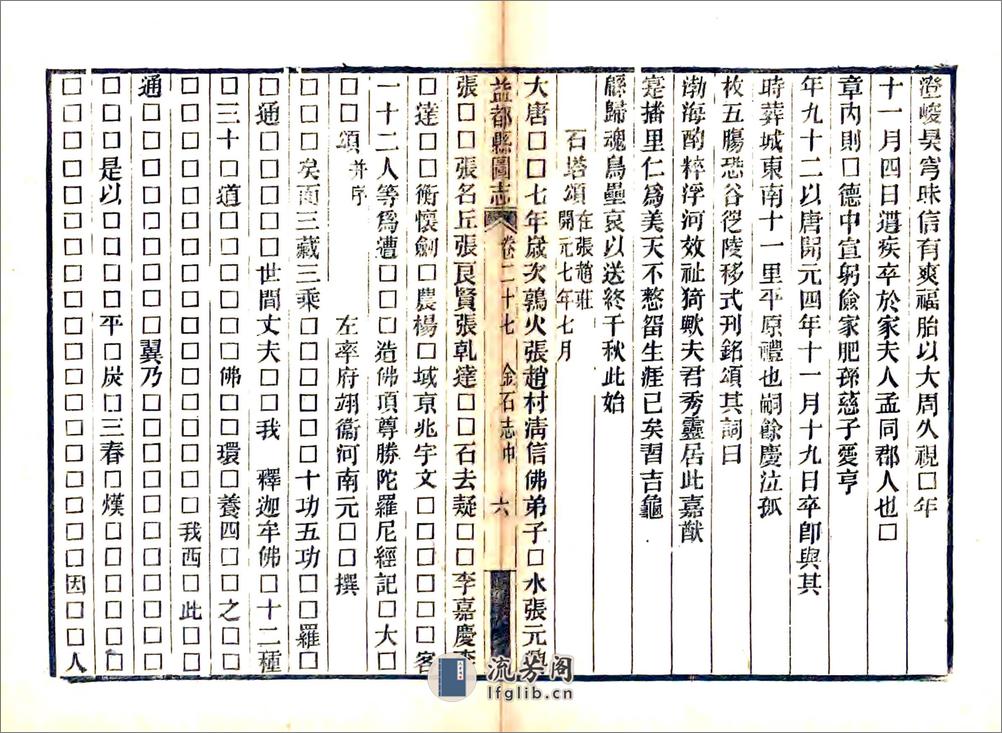 澄峻昊穹昧信有爽福胎以大周久視□年
十一月四日遘疾卒於家夫人孟同郡人也□
章內則□德中宣躬儉家肥孫慈子愛亨
年九十二以唐開元四年十一月十九日卒即與其
時葬城東南十一里平原禮也嗣餘慶泣孤
枚五膓恐谷從陵移式刊銘頌其詞曰
渤海酌粹浮河效祉猗歟夫君秀靈居此嘉猷
寔播里仁爲美天不憗留生涯已矣習吉龜
繇歸魂鳥壘哀以送終千秋此始
石塔頌在張趙莊開元七年七月
大唐□□七年歲次鶉火張趙村清信佛弟子□水張元
益都縣圖志 卷二十七 金石志中 六
張□□張名丘張良賢張軋達□□石去疑□□李嘉慶李
□達□□衡懷劍□農楊□域京兆宇文□□□□□客
一十二人等爲遭□□□造佛頂尊勝陀羅尼經記□大□
□□頌并序 左率府翊衞河南元□□撰
□□□矣而三藏三乘□□□□□□十功五功□□□羅□
□通□□□□□世間丈夫□□我 釋迦牟佛□十二種
□三十□道□□□□□佛□環□養四□□之□□
□□□□□□□□□□□□□□□我西□此□□
通□□□□□□□□翼乃□□□□□□□□□□□
□□□是以□□□□平炭□三春□熯□□□□□□
□□□□□□□□□□□□□□□□□因□□人
流芳阁
lfglib.cn